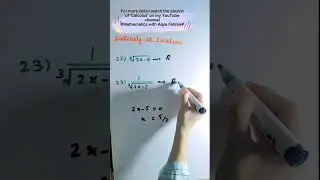 For more detail watch the playlist
of "Calculus" on my YouTube
channel
"Mathematics with Aqsa Fatima"
Continuity of Functions
22) ∛(2x-5) → R
23) 1/∛(2x-5) → R
2x-5=0
x = 5/2
23) 1/∛(2x-5)